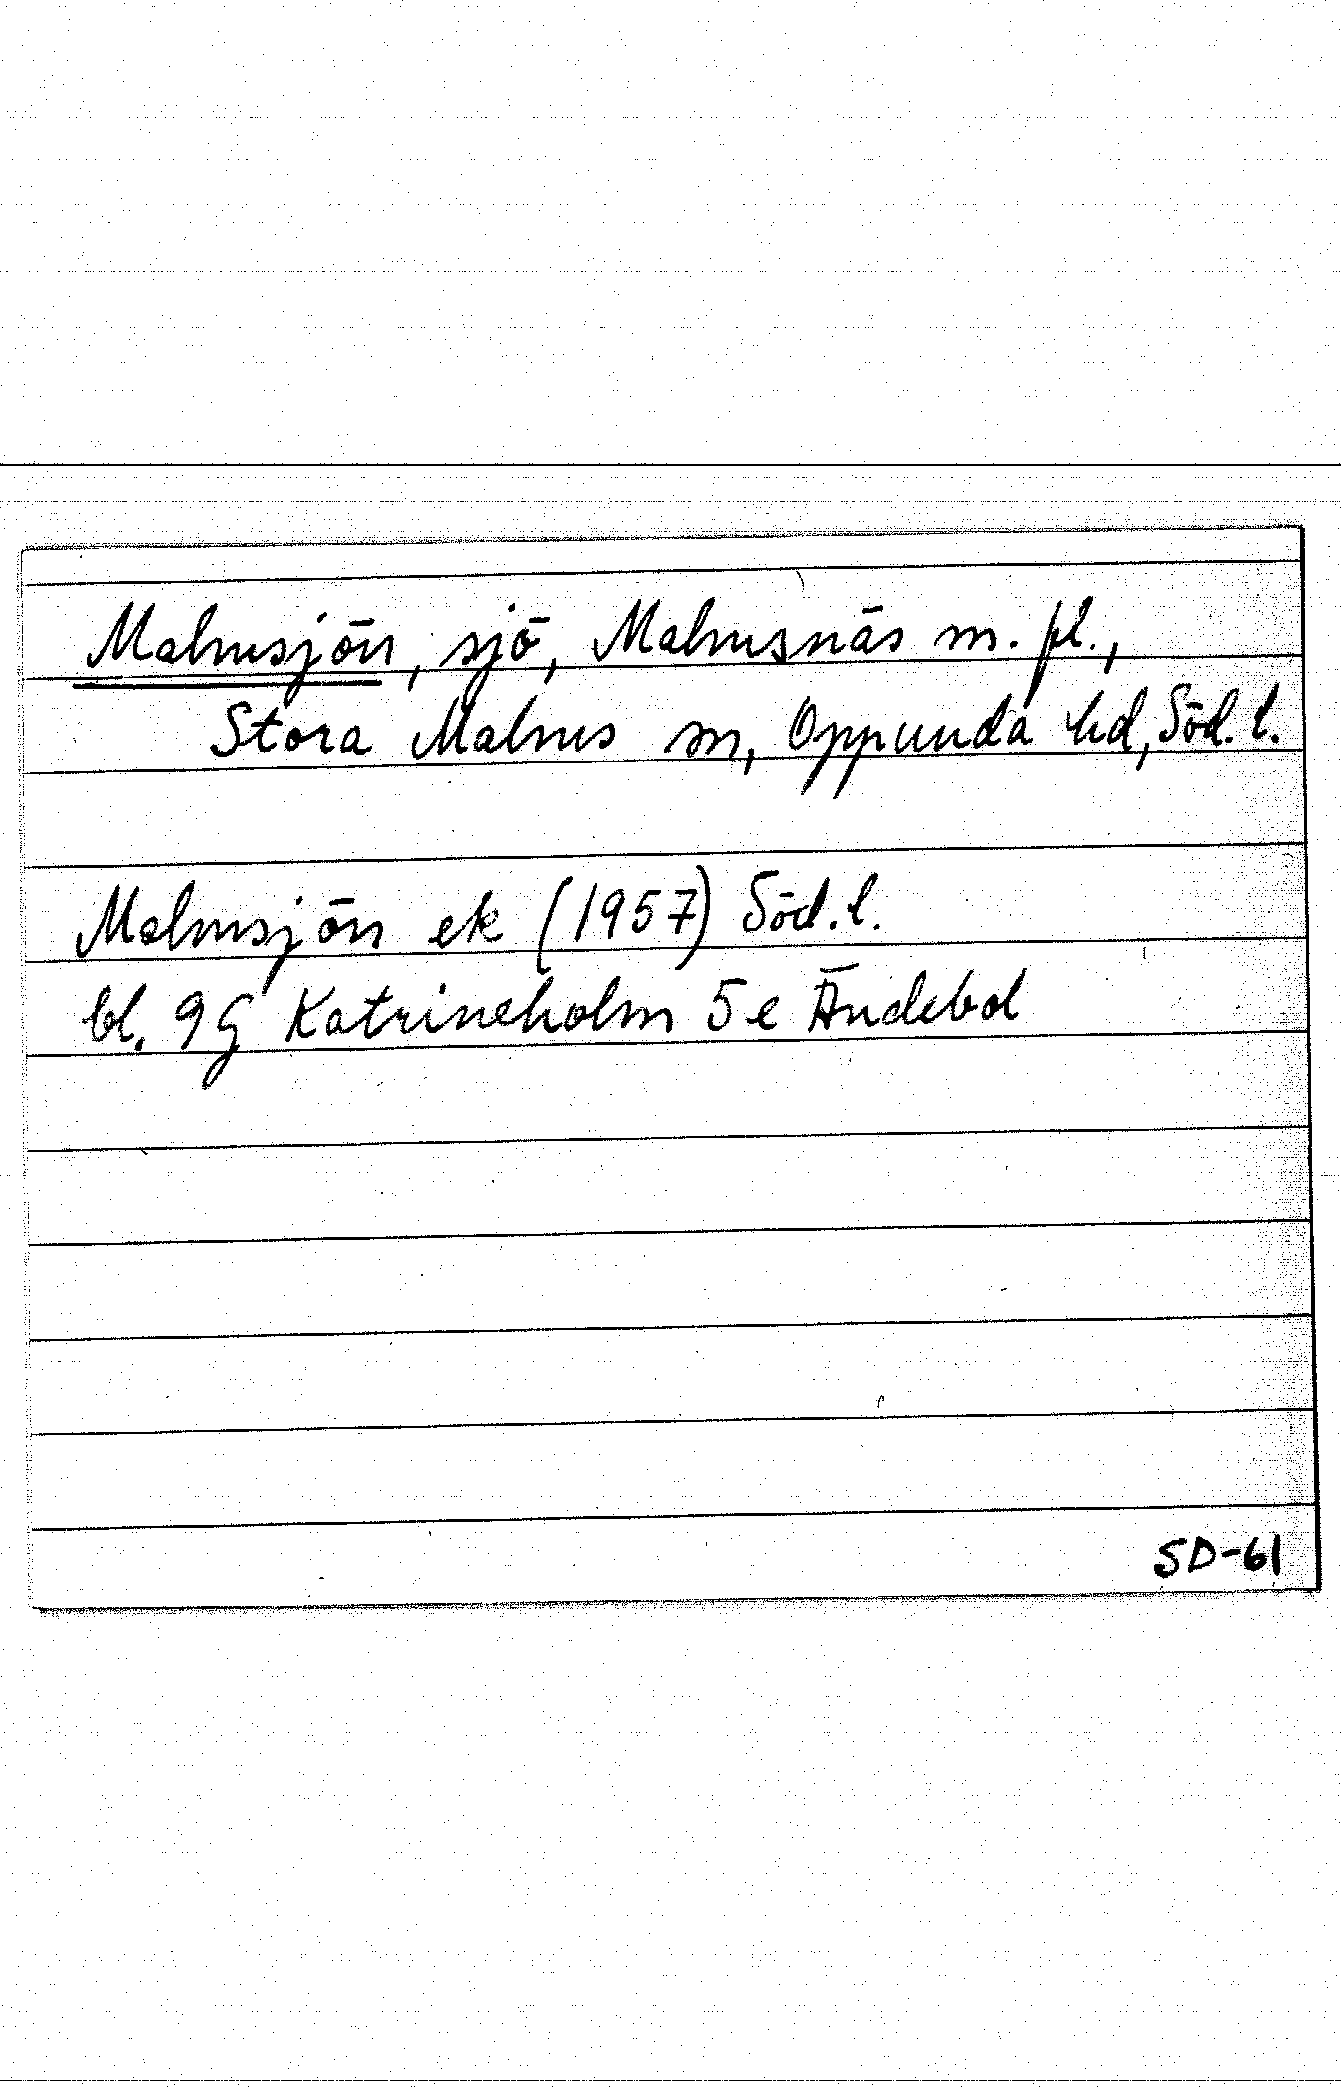 Malmsjön, sjö, Malmsnäs m. fl.,
Stora Malms sn, Oppunda hd, Söd. l.
Malmsjön ek (1957) Söd. l.
bl. 9G Katrineholm 5e Ändebol
SD-61